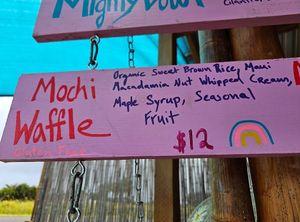 Mighty Bowl
Mochi
Waffle
Gluten Free
Organic Sweet Brown Rice, Maui
Macadamia Nut Whipped Cream,
Maple Syrup, Seasonal
Fruit
$12